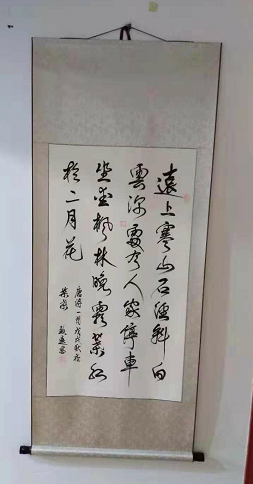 遠上寒山石徑斜白
雲深處有人家停車
坐愛楓林晚霜葉紅
於二月花
唐詩一首戊戌秋